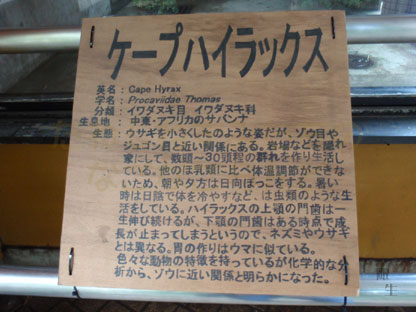 ケープハイラックス
英名 : Cape Hyrax
学名 : Procaviidae Thomas
分類 : イワダヌキ目 イワダヌキ科
生息地 : 中東・アフリカのサバンナ
生態 : ウサギを小さくしたのような姿だが、ゾウ目や
ジュゴン目と近い関係にある。岩場などを隠れ
家にして、数頭～30頭程の群れを作り生活し
ている。他のほ乳類に比べ体温調節ができな
いため、朝や夕方は日向ぼっこをする。暑い
時は日陰で体を冷やすなど、は虫類のような生
活をしている。ハイラックスの上顎の門歯は一
生伸び続けるが、下顎の門歯はある時点で成
長が止まってしまうというので、ネズミやウサギ
とは異なる。胃の作りはウマに似ている。
色々な動物の特徴を持っているが化学的な分
析から、ゾウに近い関係と明らかになった。